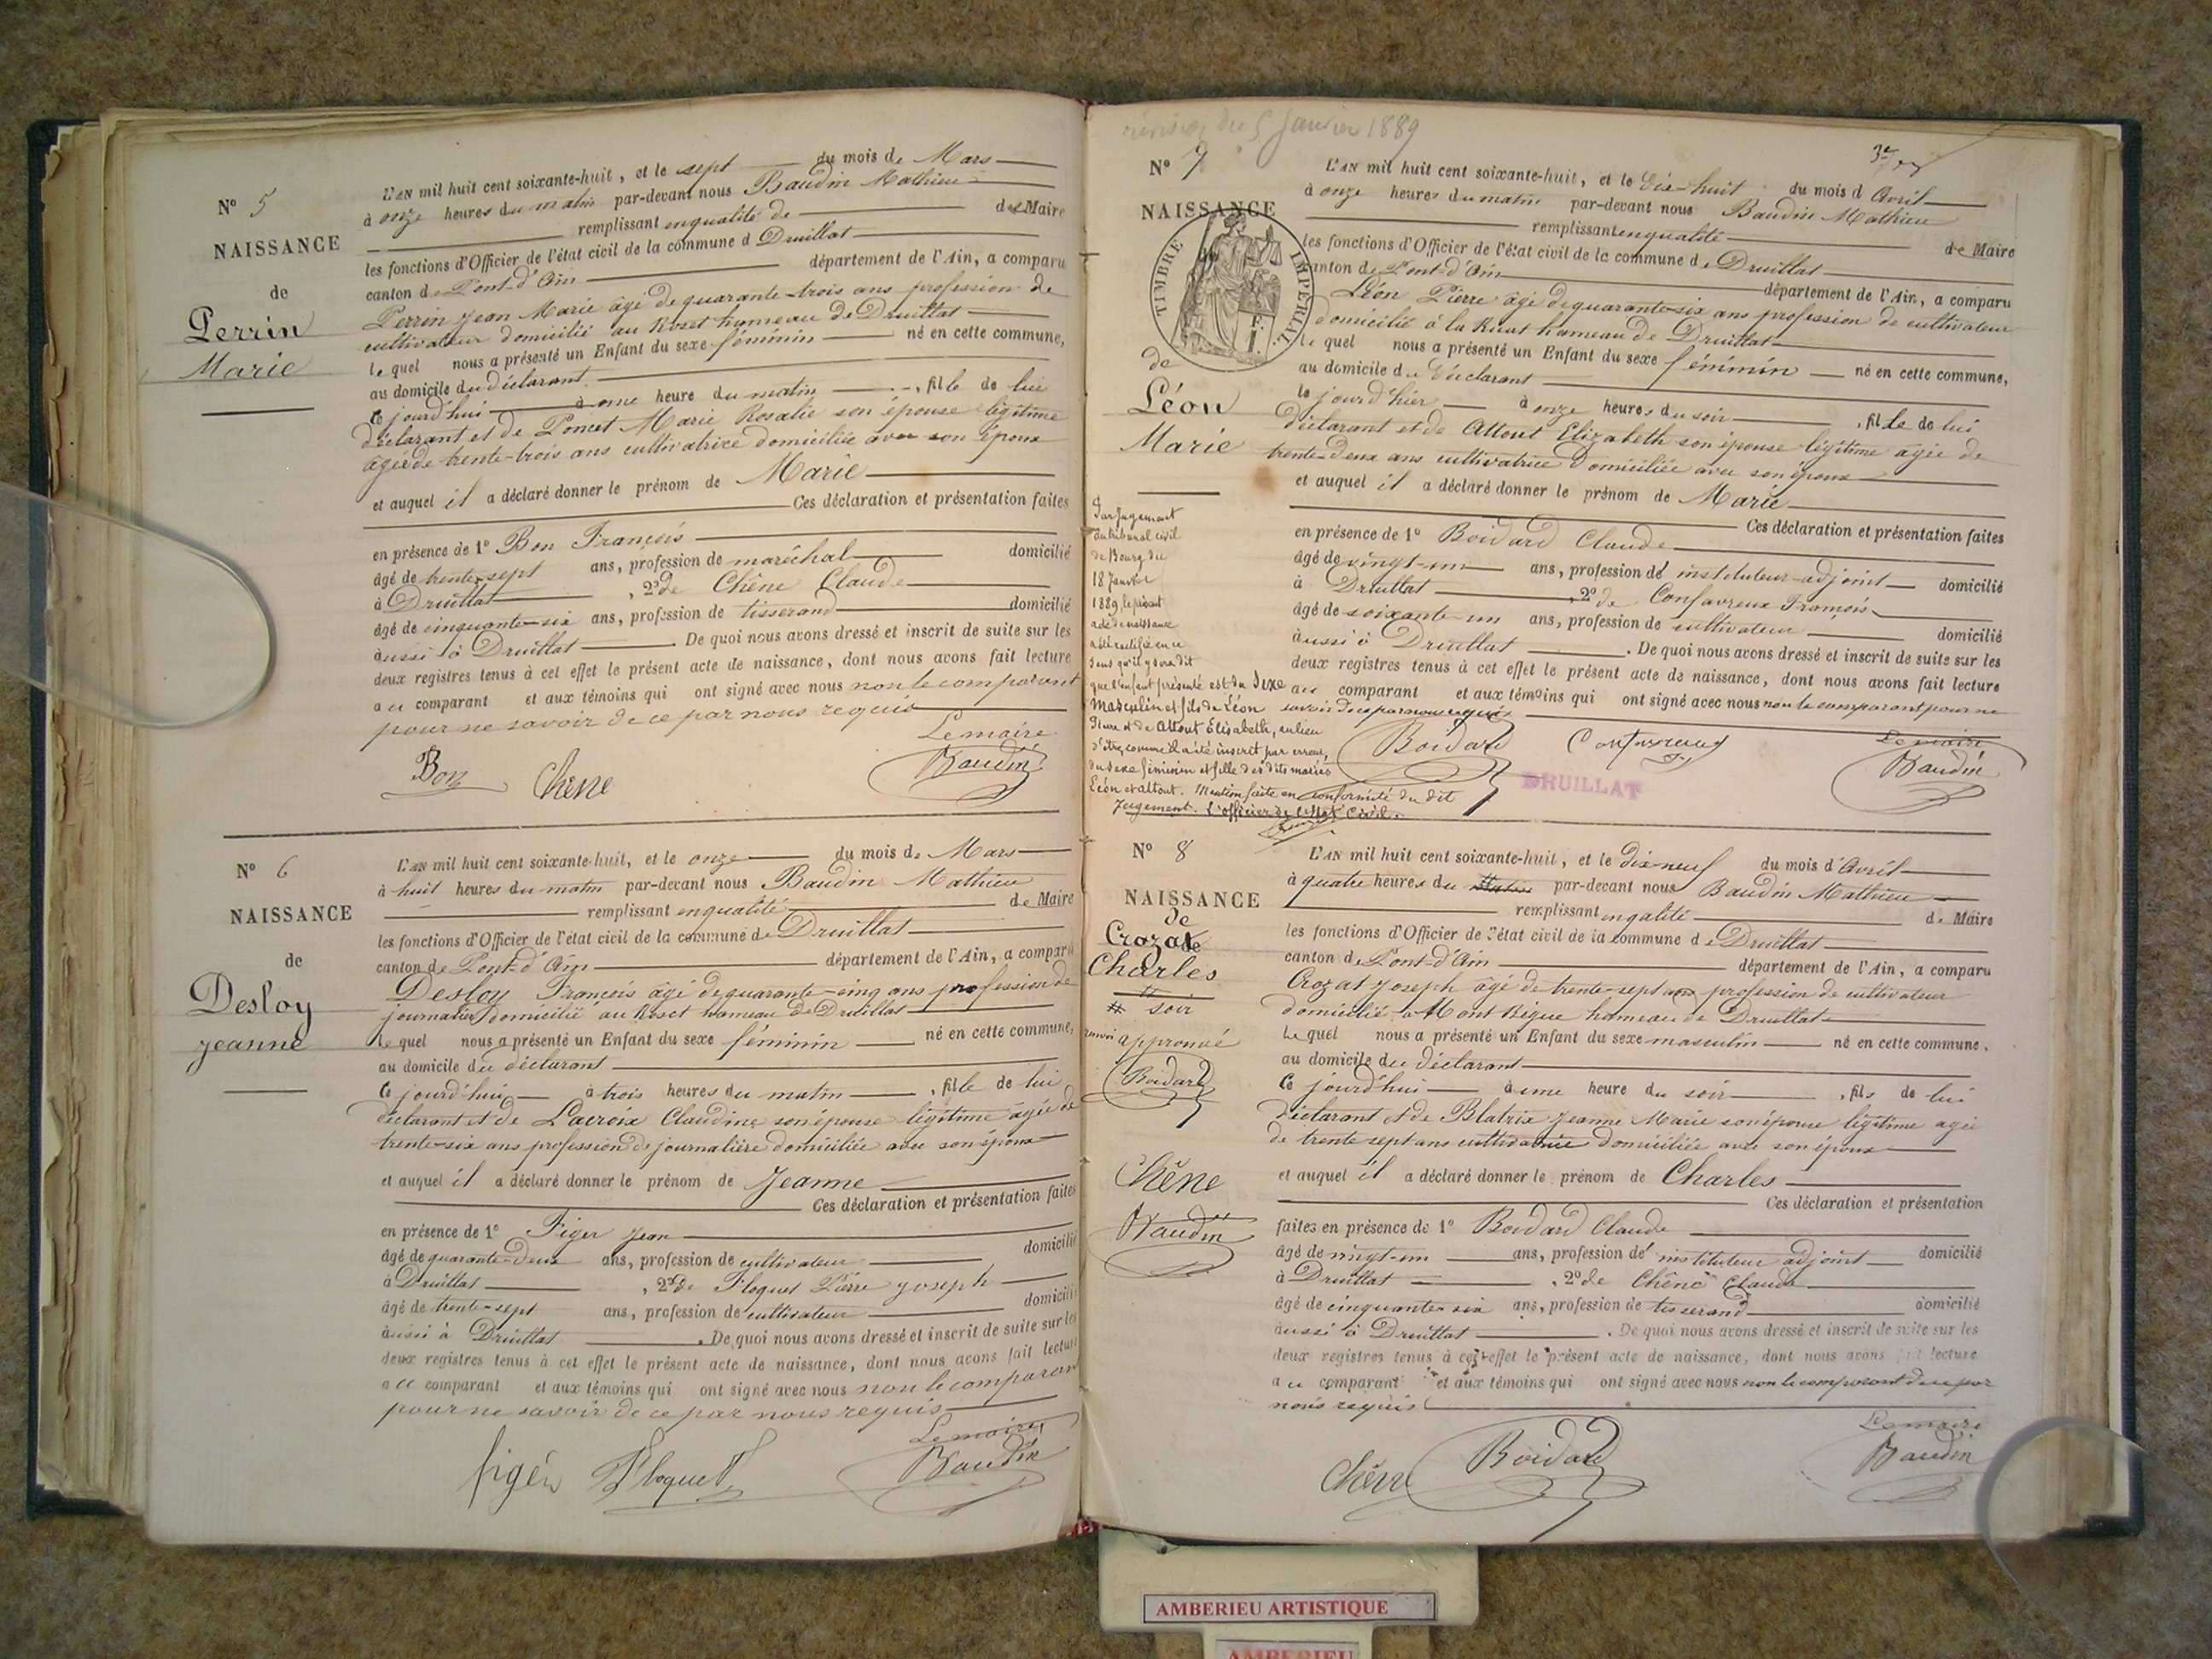 N° 5
NAISSANCE
de
Perrin
Marie
L'AN mil huit cent soixante-huit, et le sept du mois de Mars
à onze heures du matin par-devant nous Baudin Mathieu
remplissant en qualité de de Maire
les fonctions d'Officier de l'état civil de la commune d Druillat
canton de Pont-d'Ain département de l'Ain, a comparu
Perrin Jean Marie âgé de quarante-trois ans profession de
cultivateur domicilié au Rozet hameau de Druillat
lequel nous a présenté un Enfant du sexe féminin né en cette commune,
au domicile du déclarant
ce jourd'hui à une heure du matin, fille de lui
déclarant et de Poncet Marie Rosalie son épouse légitime
âgée de trente-trois ans cultivatrice domiciliée avec son époux
et auquel il a déclaré donner le prénom de Marie
Ces déclaration et présentation faites
en présence de 1° Bon François
âgé de trente-sept ans, profession de maréchal domicilié
à Druillat, 2° de Chêne Claude
âgé de cinquante-six ans, profession de tisserand domicilié
aussi à Druillat. De quoi nous avons dressé et inscrit de suite sur les
deux registres tenus à cet effet le présent acte de naissance, dont nous avons fait lecture
au comparant et aux témoins qui ont signé avec nous non le comparant
pour ne savoir de ce par nous requis
Le maire
Bon Chêne Baudin
N° 6
NAISSANCE
de
Desloy
Jeanne
L'AN mil huit cent soixante-huit, et le onze du mois de Mars
à huit heures du matin par-devant nous Baudin Mathieu
remplissant en qualité de Maire
les fonctions d'Officier de l'état civil de la commune de Druillat
canton de Pont-d'Ain département de l'Ain, a comparu
Desloy François âgé de quarante-cinq ans profession de
journalier domicilié au Roset hameau de Druillat
lequel nous a présenté un Enfant du sexe féminin né en cette commune,
au domicile du déclarant
ce jourd'hui à trois heures du matin, fille de lui
déclarant et de Lacroix Claudine son épouse légitime âgée de
trente-six ans profession de journalière domiciliée avec son époux
et auquel il a déclaré donner le prénom de Jeanne
Ces déclaration et présentation faites
en présence de 1° Figer Jean
âgé de quarante-deux ans, profession de cultivateur domicilié
à Druillat, 2° de Floquet Pierre Joseph
âgé de trente-sept ans, profession de cultivateur domicilié
aussi à Druillat. De quoi nous avons dressé et inscrit de suite sur les
deux registres tenus à cet effet le présent acte de naissance, dont nous avons fait lecture
au comparant et aux témoins qui ont signé avec nous non le comparant
pour ne savoir de ce par nous requis
Le maire
Floquet Baudin
du 5 Janvier 1889
N° 7
NAISSANCE
TIMBRE IMPERIAL
de
Léon
Marie
L'AN mil huit cent soixante-huit, et le dix-huit du mois d Avril
à onze heures du matin par-devant nous Baudin Mathieu
remplissant en qualité de Maire
les fonctions d'Officier de l'état civil de la commune de Druillat
canton de Pont-d'Ain département de l'Ain, a comparu
Léon Pierre âgé de quarante-six ans profession de cultivateur
domicilié à la Ruat hameau de Druillat
lequel nous a présenté un Enfant du sexe féminin né en cette commune,
au domicile du déclarant
le jourd'hier à onze heures du soir, fille de lui
déclarant et de Attout Elizabeth son épouse légitime âgée de
trente-deux ans cultivatrice domiciliée avec son époux
et auquel il a déclaré donner le prénom de Marie
Ces déclaration et présentation faites
en présence de 1° Boidard Claude
âgé de vingt-un ans, profession d' instituteur-adjoint domicilié
à Druillat, 2° de Confavreux François
âgé de soixante-un ans, profession de cultivateur domicilié
aussi à Druillat. De quoi nous avons dressé et inscrit de suite sur les
deux registres tenus à cet effet le présent acte de naissance, dont nous avons fait lecture
au comparant et aux témoins qui ont signé avec nous non le comparant pour ne
savoir de ce par nous requis
Le maire
Boidard Confavreux Baudin
DRUILLAT
Par Jugement
du tribunal civil
de Bourg du
18 Janvier
1889, le présent
acte de naissance
a été rectifié en ce
sens qu'il y sera dit
que l'enfant présenté est du sexe
masculin et fils de Léon
Pierre et de Attout Elisabeth, au lieu
d'être, comme il a été inscrit par erreur,
du sexe féminin et fille des dits mariés
Léon et Attout. Mention faite en conformité du dit
Jugement. L'officier de l'état Civil.
N° 8
NAISSANCE
de
Crozat
Charles
# soir
renvoi approuvé
Boidard
Chêne
Baudin
L'AN mil huit cent soixante-huit, et le dix-neuf du mois d'Avril
à quatre heures du matin par-devant nous Baudin Mathieu
remplissant en qalité de Maire
les fonctions d'Officier de l'état civil de la commune de Druillat
canton de Pont-d'Ain département de l'Ain, a comparu
Crozat Joseph âgé de trente-sept ans profession de cultivateur
domicilié à Mont Bigue hameau de Druillat
lequel nous a présenté un Enfant du sexe masculin né en cette commune,
au domicile du déclarant
ce jourd'hui à une heure du soir, fils de lui
déclarant et de Blatrix Jeanne Marie son épouse légitime agée
de trente sept ans cultivatrice domiciliée avec son époux
et auquel il a déclaré donner le prénom de Charles
Ces déclaration et présentation
faites en présence de 1° Boidard Claude
âgé de vingt-un ans, profession d' instituteur adjoint domicilié
à Druillat, 2° de Chêne Claude
âgé de cinquante-six ans, profession de tisserand domicilié
aussi à Druillat. De quoi nous avons dressé et inscrit de suite sur les
deux registres tenus à cet effet le présent acte de naissance, dont nous avons fait lecture
au comparant et aux témoins qui ont signé avec nous non le comparant de ce par
nous requis
Le maire
Chêne Boidard Baudin
AMBERIEU ARTISTIQUE
AMBERIEU